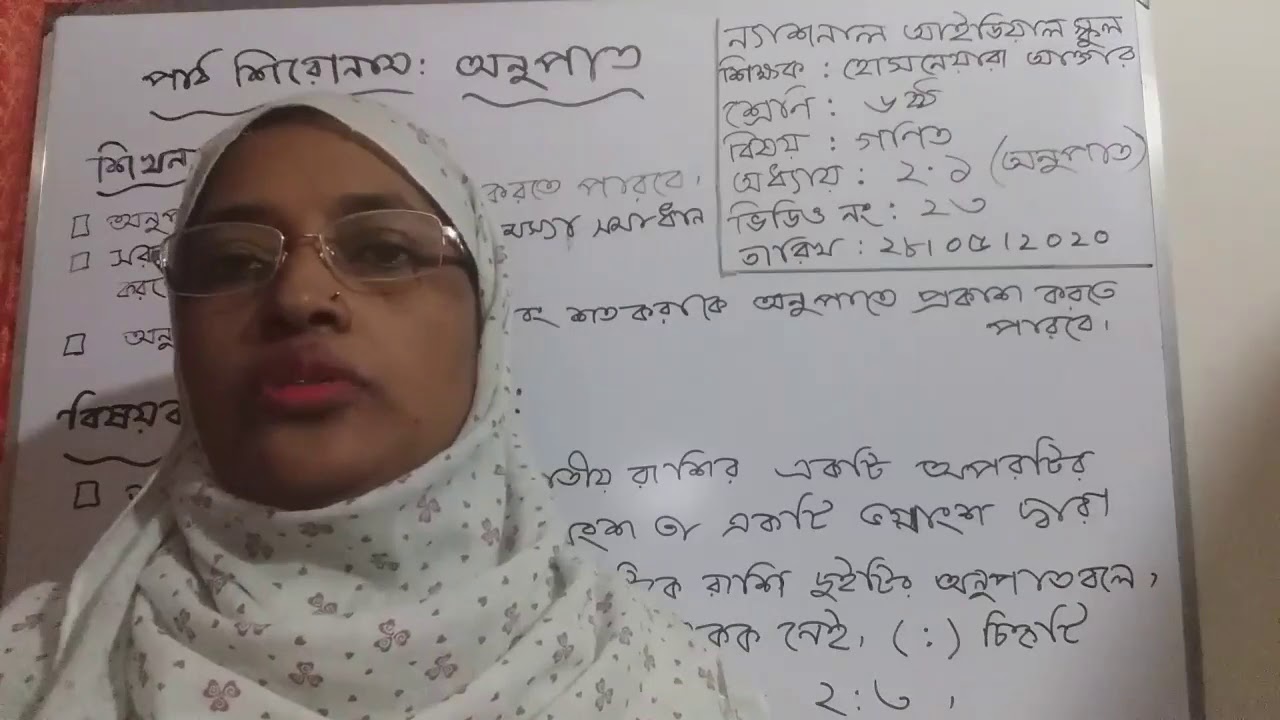 পাঠ শিরোনাম: অনুপাত
ন্যাশনাল আইডিয়াল স্কুল
শিক্ষক : হোসনেয়ারা আক্তার
শ্রেণি : ৬ষ্ঠ
বিষয় : গণিত
অধ্যায় : ২.১ (অনুপাত)
ভিডিও নং : ২৩
তারিখ : ২৮।০৫।২০২০
শিখন
করতে পারবে।
সমাধান
শতকরাকে অনুপাতে প্রকাশ করতে
পারবে।
রাশির একটি অপরটির
তা একটি ভগ্নাংশ দ্বারা
রাশি দুইটির অনুপাত বলে,
নেই, (:) চিহ্নটি
২:৩,